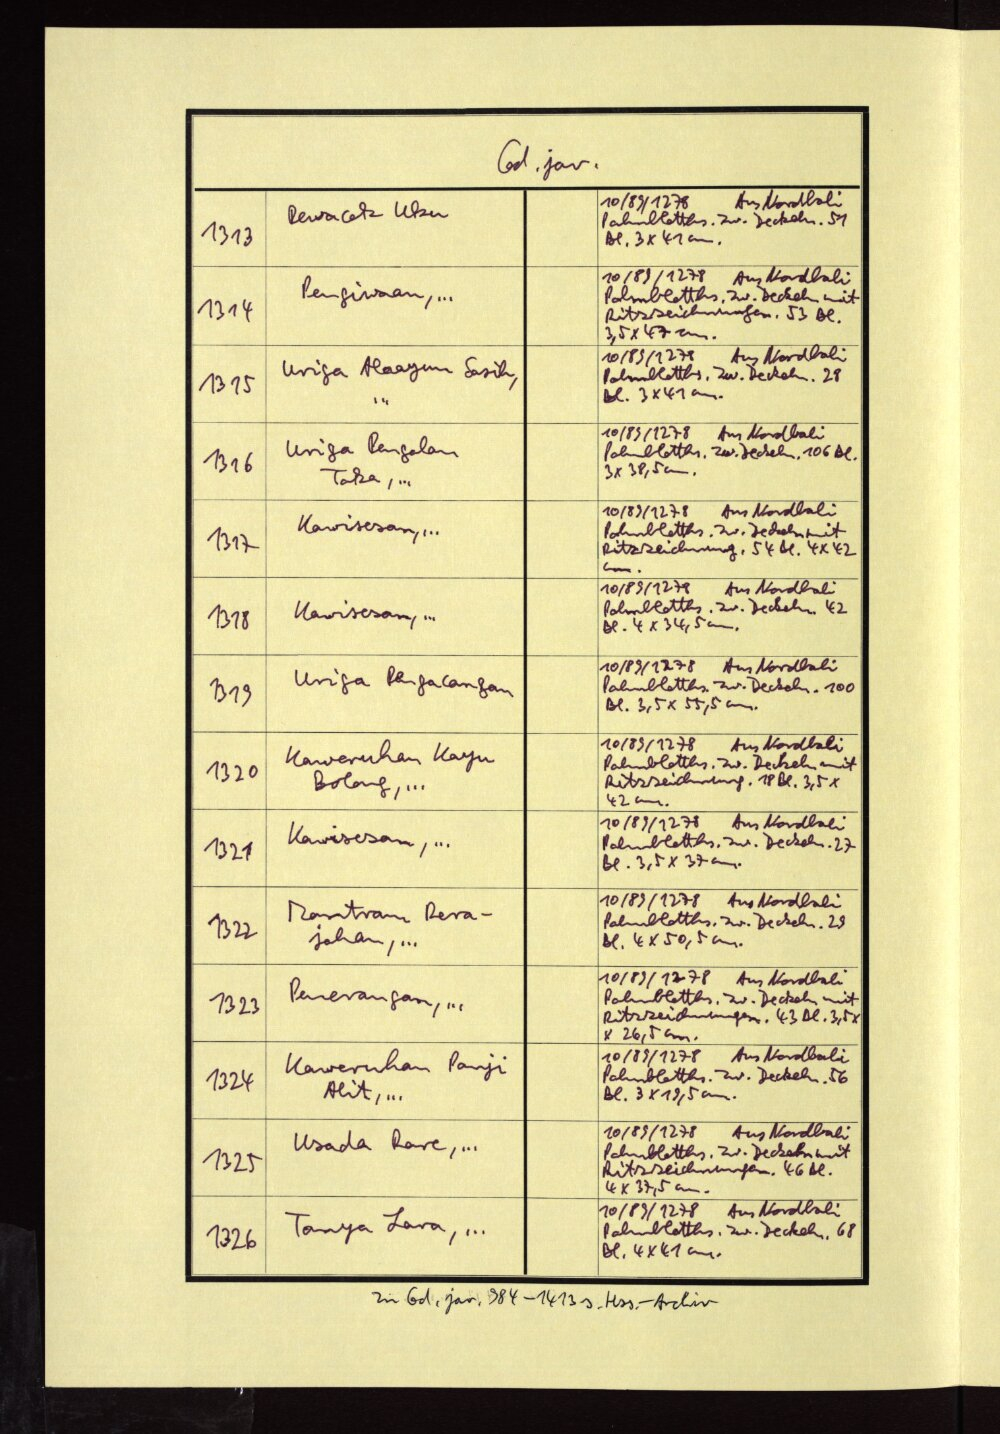 Cod. jav.
1313
Pewacak Uku
10/89/1278 Aus Nordbali
Palmblatths. zw. Deckeln. 51
Bl. 3 x 41 cm.
1314
Pengiwaan,...
10/89/1278 Aus Nordbali
Palmblatths. zw. Deckeln mit
Ritzzeichnungen. 53 Bl.
3,5 x 47 cm.
1315
Uriga Alaayun Sasih,
...
10/89/1278 Aus Nordbali
Palmblatths. zw. Deckeln. 28
Bl. 3 x 41 cm.
1316
Uriga Pengalan
Taka,...
10/89/1278 Aus Nordbali
Palmblatths. zw. Deckeln. 106 Bl.
3 x 38,5 cm.
1317
Kawisesan,...
10/89/1278 Aus Nordbali
Palmblatths. zw. Deckeln mit
Ritzzeichnung. 54 Bl. 4 x 42
cm.
1318
Kawisesan,...
10/89/1278 Aus Nordbali
Palmblatths. zw. Deckeln. 42
Bl. 4 x 34,5 cm.
1319
Uriga Pengacangan
10/89/1278 Aus Nordbali
Palmblatths. zw. Deckeln. 100
Bl. 3,5 x 55,5 cm.
1320
Kaweruhan Kayu
Bolong,...
10/89/1278 Aus Nordbali
Palmblatths. zw. Deckeln mit
Ritzzeichnung. 18 Bl. 3,5 x
42 cm.
1321
Kawisesan,...
10/89/1278 Aus Nordbali
Palmblatths. zw. Deckeln. 27
Bl. 3,5 x 37 cm.
1322
Mantram Rera-
jahan,...
10/89/1278 Aus Nordbali
Palmblatths. zw. Deckeln. 29
Bl. 4 x 50,5 cm.
1323
Penerangan,...
10/89/1278 Aus Nordbali
Palmblatths. zw. Deckeln mit
Ritzzeichnungen. 43 Bl. 3,5 x
x 26,5 cm.
1324
Kaweruhan Panji
Alit,...
10/89/1278 Aus Nordbali
Palmblatths. zw. Deckeln. 56
Bl. 3 x 19,5 cm.
1325
Usada Rare,...
10/89/1278 Aus Nordbali
Palmblatths. zw. Deckeln mit
Ritzzeichnungen. 46 Bl.
4 x 37,5 cm.
1326
Tanya Lara,...
10/89/1278 Aus Nordbali
Palmblatths. zw. Deckeln. 68
Bl. 4 x 41 cm.
zu Cod. jav. 984-1413 s. Hss.-Archiv